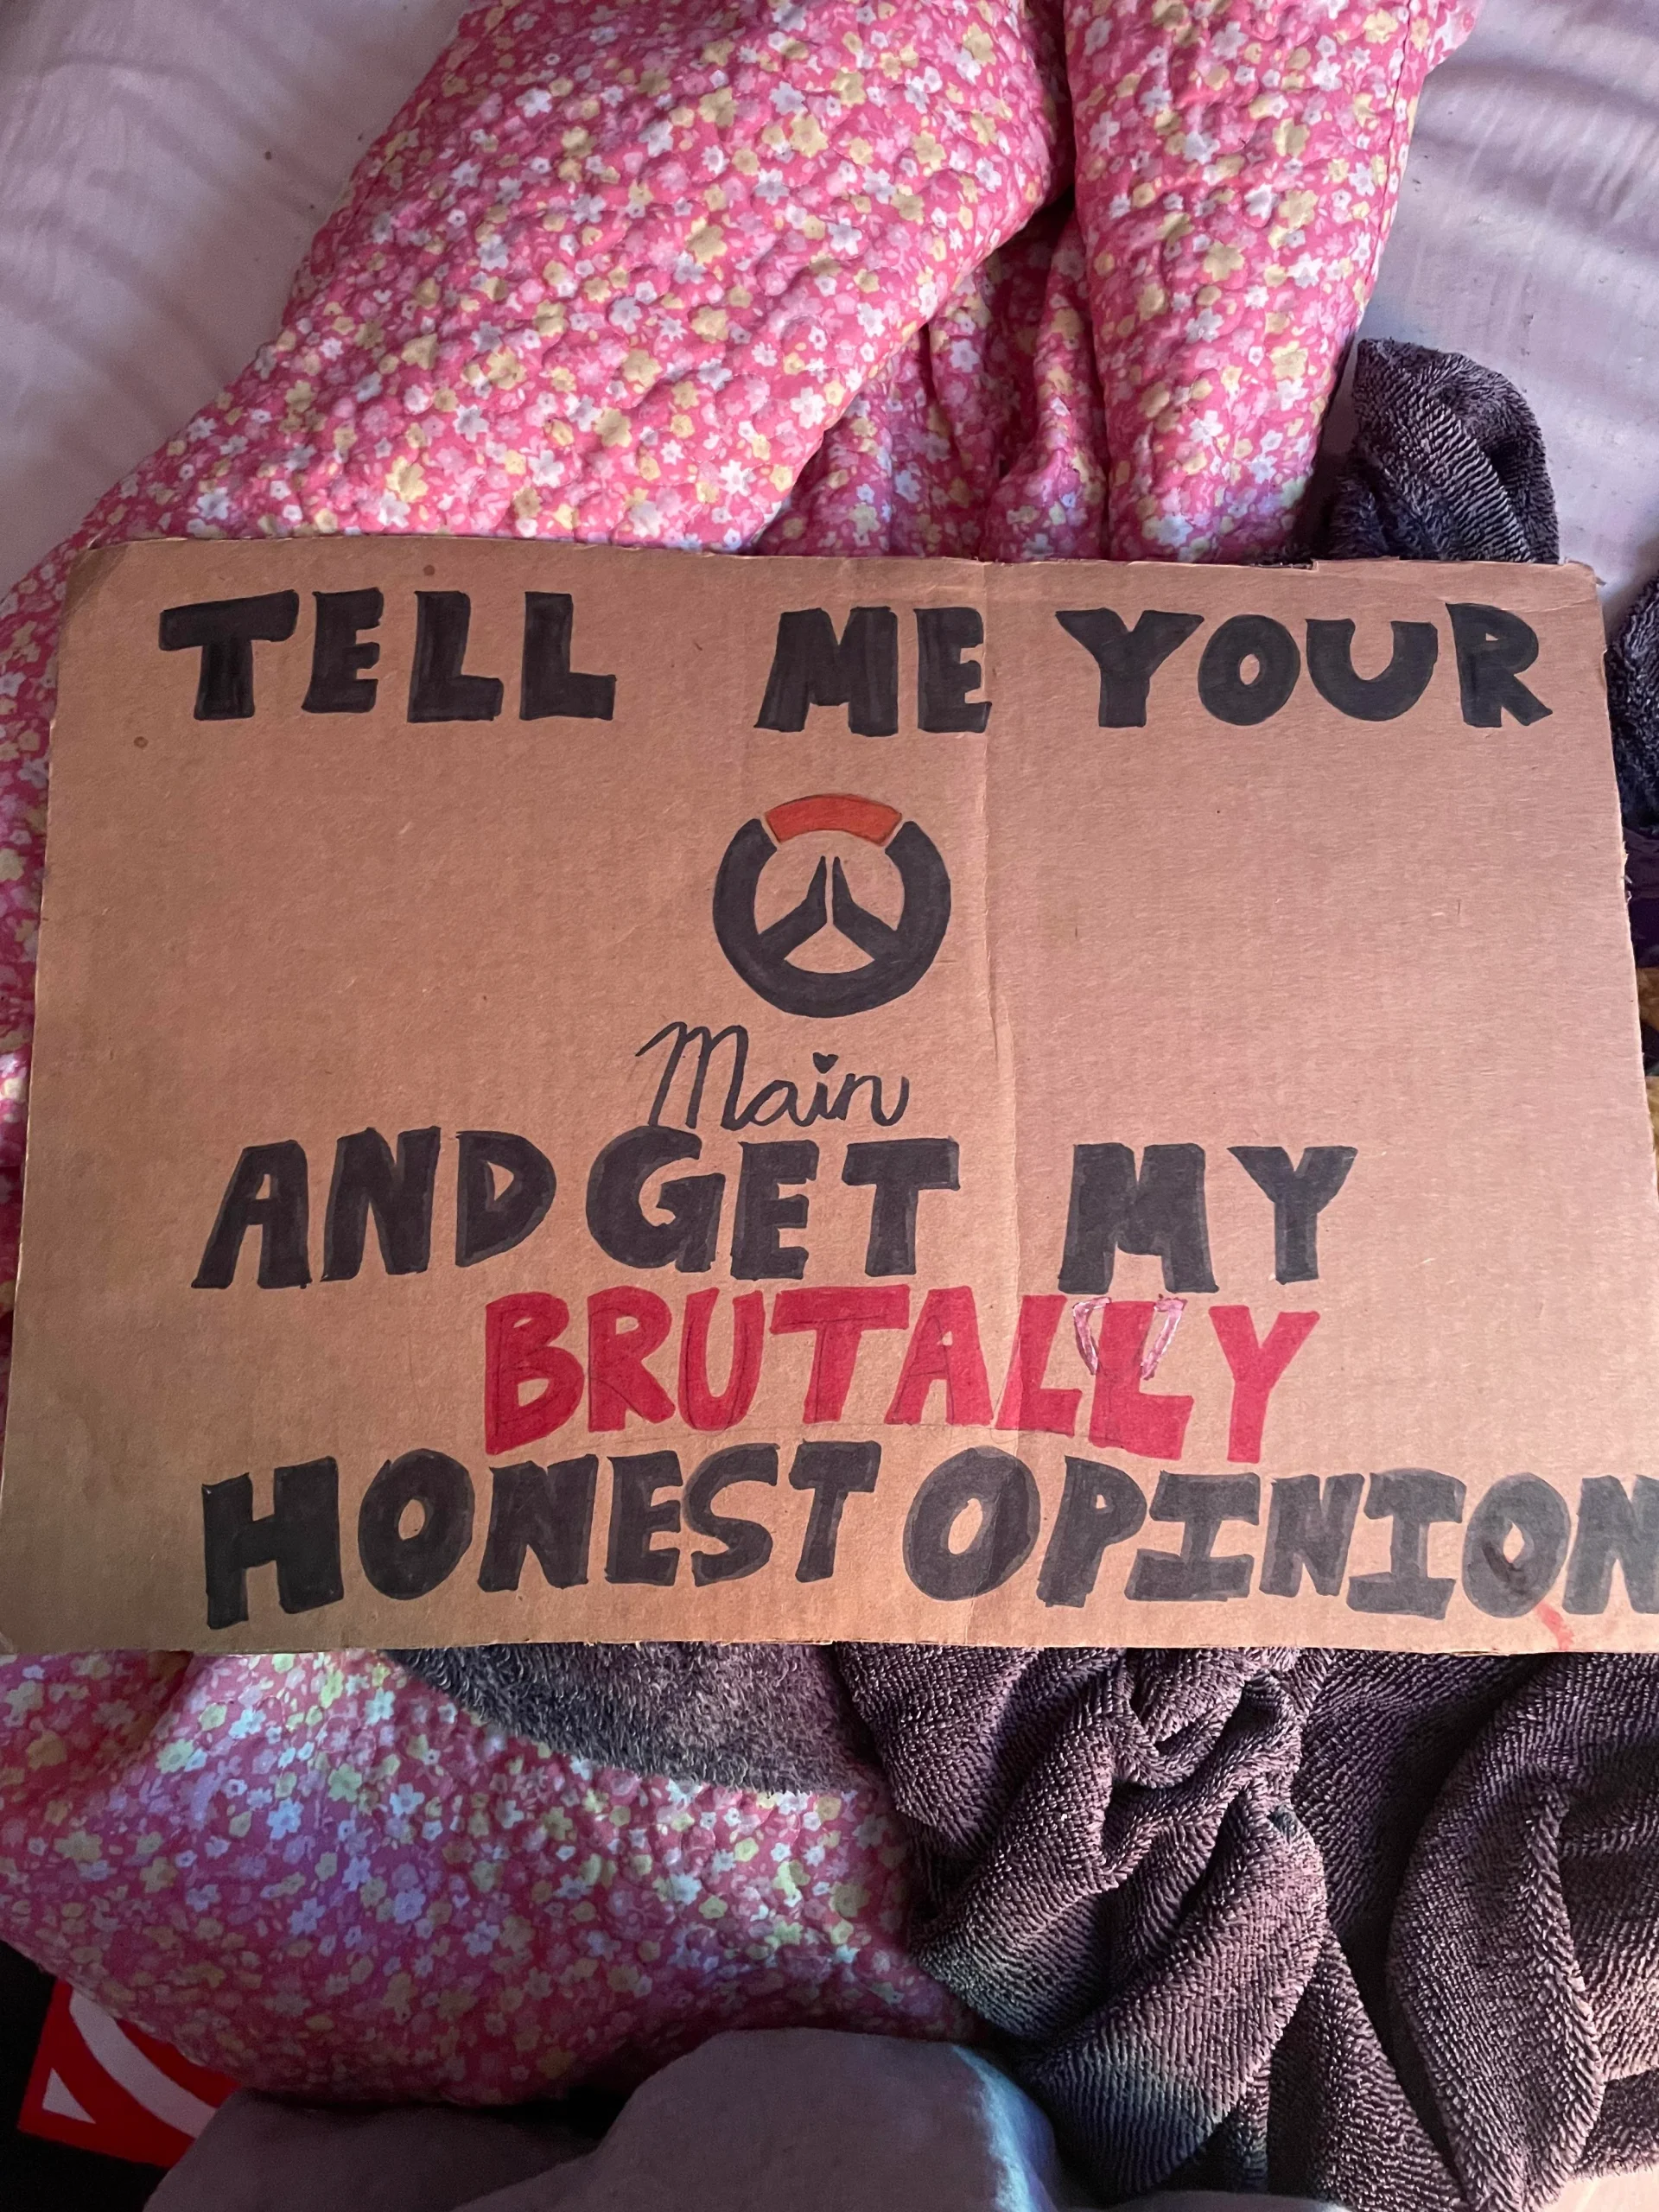 TELL ME YOUR
Main
AND GET MY
BRUTALLY
HONEST OPINION